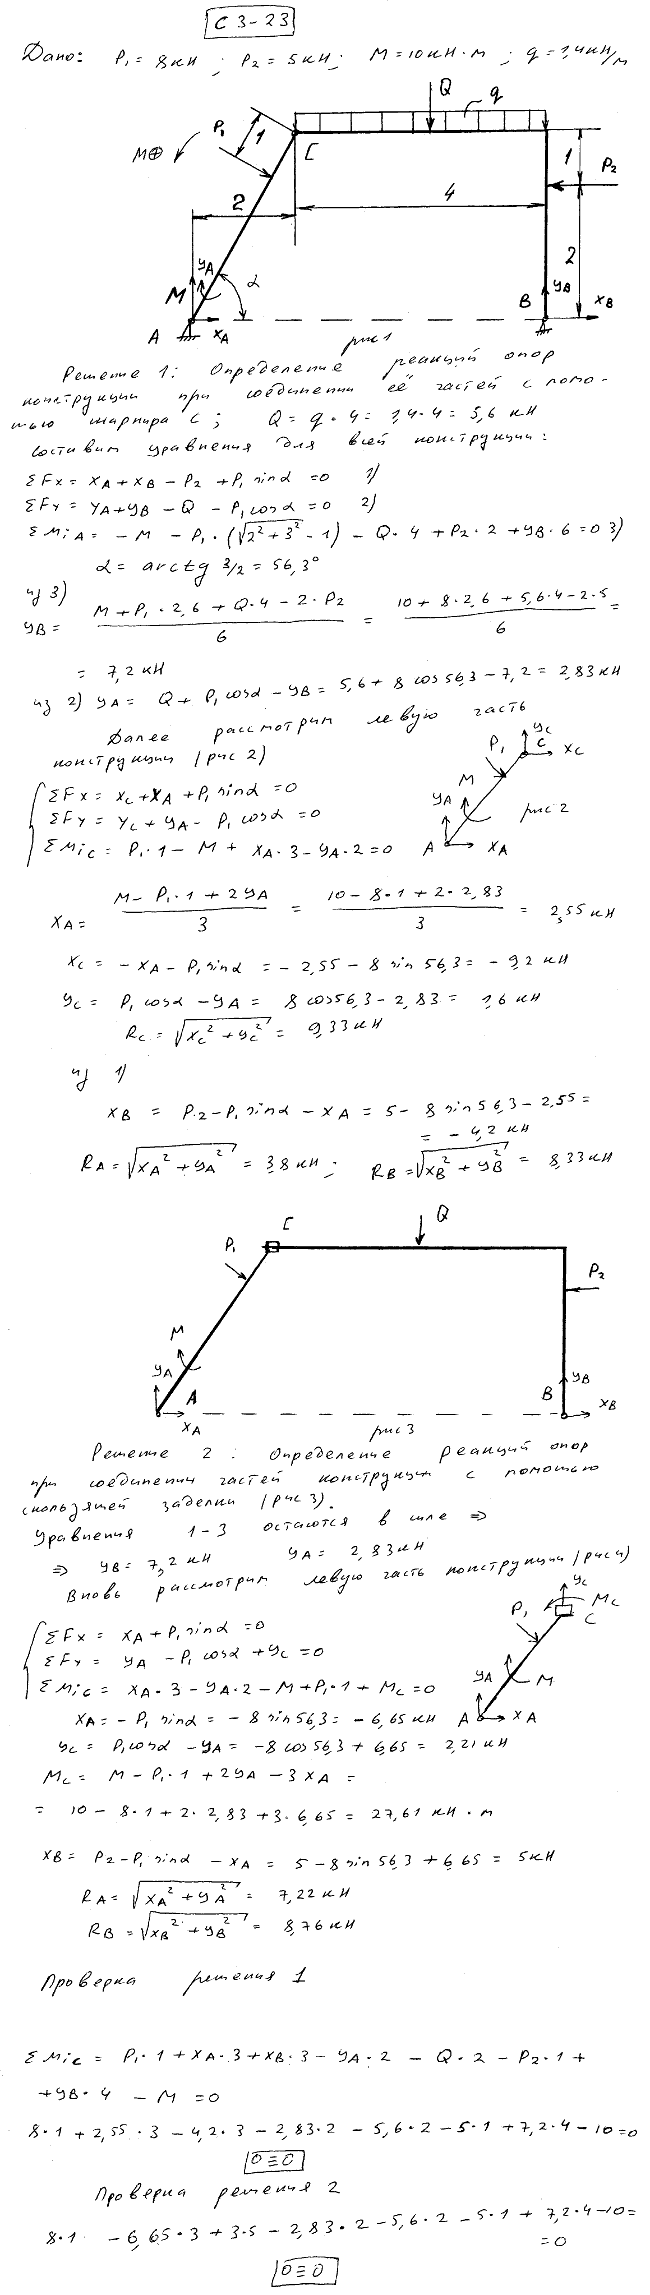 С 3-23
Дано: P₁ = 8 кН ; P₂ = 5 кН ; M = 10 кН·м ; q = 1,4 кН/м
Q
q
P₁
1
M⊕
C
1
P₂
2
4
2
yA
M
α
B
yB
xB
A
xA
рис 1
Решение 1: Определение реакций опор
конструкции при соединении её частей с помо-
щью шарнира C ; Q = q·4 = 1,4·4 = 5,6 кН
Составим уравнения для всей конструкции:
ΣFx = XA + XB − P₂ + P₁ sinα = 0 1)
ΣFy = YA + YB − Q − P₁ cosα = 0 2)
ΣMiA = − M − P₁·(√(2² + 3²) − 1) − Q·4 + P₂·2 + YB·6 = 0 3)
α = arctg 3/2 = 56,3°
из 3)
YB = (M + P₁·2,6 + Q·4 − 2·P₂)/6 = (10 + 8·2,6 + 5,6·4 − 2·5)/6 =
= 7,2 кН
из 2) YA = Q + P₁ cosα − YB = 5,6 + 8 cos 56,3 − 7,2 = 2,83 кН
Далее рассмотрим левую часть
конструкции (рис 2)
yC
P₁
C
xC
M
yA
рис 2
A
xA
ΣFx = XC + XA + P₁ sinα = 0
ΣFy = YC + YA − P₁ cosα = 0
ΣMiC = P₁·1 − M + XA·3 − YA·2 = 0
XA = (M − P₁·1 + 2YA)/3 = (10 − 8·1 + 2·2,83)/3 = 2,55 кН
XC = − XA − P₁ sinα = − 2,55 − 8 sin 56,3 = − 9,2 кН
YC = P₁ cosα − YA = 8 cos 56,3 − 2,83 = 1,6 кН
RC = √(XC² + YC²) = 9,33 кН
из 1)
XB = P₂ − P₁ sinα − XA = 5 − 8 sin 56,3 − 2,55 =
= − 4,2 кН
RA = √(XA² + YA²) = 3,8 кН ; RB = √(XB² + YB²) = 8,33 кН
C
Q
P₁
P₂
M
yA
A
xA
B
yB
xB
рис 3
Решение 2 : Определение реакций опор
при соединении частей конструкции с помощью
скользящей заделки (рис 3).
Уравнения 1-3 остаются в силе ⇒
⇒ YB = 7,2 кН YA = 2,83 кН
Вновь рассмотрим левую часть конструкции (рис 4)
yC
MC
P₁
C
yA
M
A
xA
ΣFx = XA + P₁ sinα = 0
ΣFy = YA − P₁ cosα + YC = 0
ΣMiC = XA·3 − YA·2 − M + P₁·1 + MC = 0
XA = − P₁ sinα = − 8 sin 56,3 = − 6,65 кН
YC = P₁ cosα − YA = − 8 cos 56,3 + 6,65 = 2,21 кН
MC = M − P₁·1 + 2YA − 3XA =
= 10 − 8·1 + 2·2,83 + 3·6,65 = 27,61 кН·м
XB = P₂ − P₁ sinα − XA = 5 − 8 sin 56,3 + 6,65 = 5 кН
RA = √(XA² + YA²) = 7,22 кН
RB = √(XB² + YB²) = 8,76 кН
Проверка решения 1
ΣMiC = P₁·1 + XA·3 + XB·3 − YA·2 − Q·2 − P₂·1 +
+ YB·4 − M = 0
8·1 + 2,55·3 − 4,2·3 − 2,83·2 − 5,6·2 − 5·1 + 7,2·4 − 10 = 0
0 ≡ 0
Проверка решения 2
8·1 − 6,65·3 + 3·5 − 2,83·2 − 5,6·2 − 5·1 + 7,2·4 − 10 =
= 0
0 ≡ 0